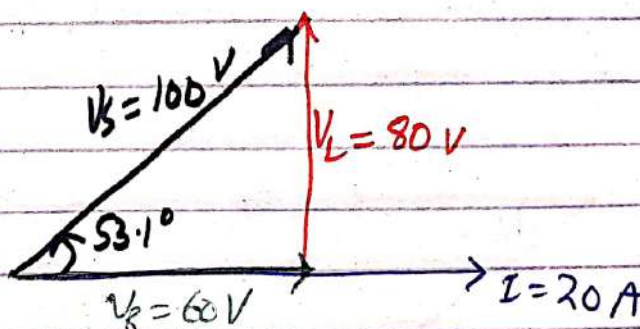 Vs = 100 V
VL = 80 V
53.1°
VR = 60 V
I = 20 A